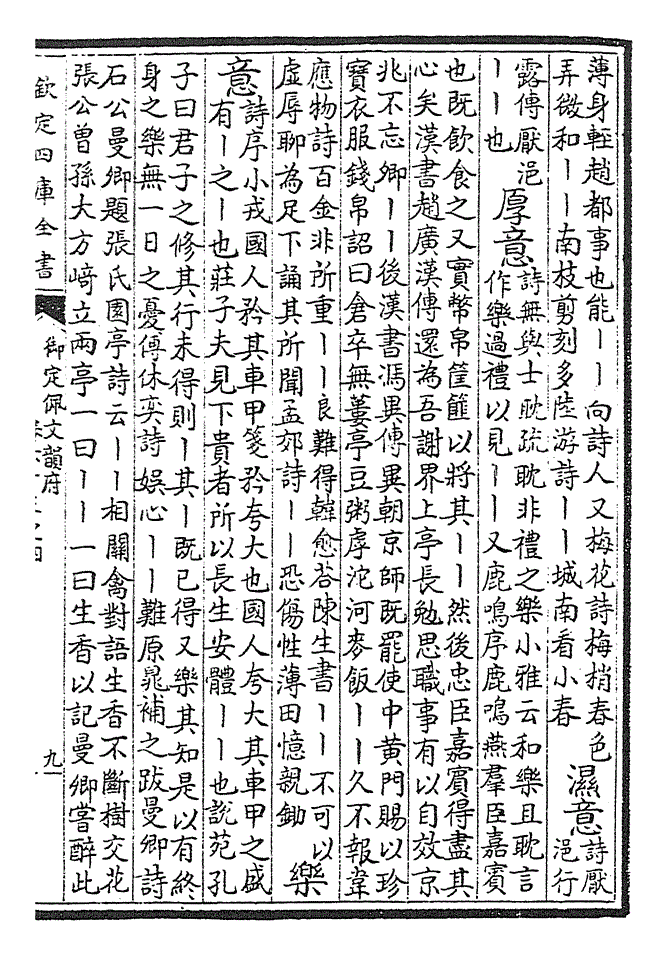 薄身輕趙都事也能丨丨向詩人又梅花詩梅梢春色
弄微和丨丨南枝剪刻多陸游詩丨丨城南看小春
濕意
詩厭
浥行
露傳厭浥
丨丨也
厚意
詩無與士耽疏耽非禮之樂小雅云和樂且耽言
作樂過禮以見丨丨又鹿鳴序鹿鳴燕羣臣嘉賓
也既飲食之又實幣帛筐篚以將其丨丨然後忠臣嘉賓得盡其
心矣漢書趙廣漢傳還為吾謝界上亭長勉思職事有以自效京
兆不忘卿丨丨後漢書馮異傳異朝京師既罷使中黄門賜以珍
寶衣服錢帛詔曰倉卒無蔞亭豆粥虖沱河麥飯丨丨久不報韋
應物詩百金非所重丨丨良難得韓愈荅陳生書丨丨不可以
虚辱聊為足下誦其所聞孟郊詩丨丨恐傷性薄田憶親鋤
樂
意
詩序小戎國人矜其車甲箋矜夸大也國人夸大其車甲之盛
有丨之丨也莊子夫見下貴者所以長生安體丨丨也說苑孔
子曰君子之修其行未得則丨其丨既已得又樂其知是以有終
身之樂無一日之憂傅休奕詩娯心丨丨難原晁補之跋曼卿詩
石公曼卿題張氏園亭詩云丨丨相關禽對語生香不斷樹交花
張公曽孫大方﨑立兩亭一曰丨丨一曰生香以記曼卿嘗醉此
欽定四庫全書
御定佩文韻府
九